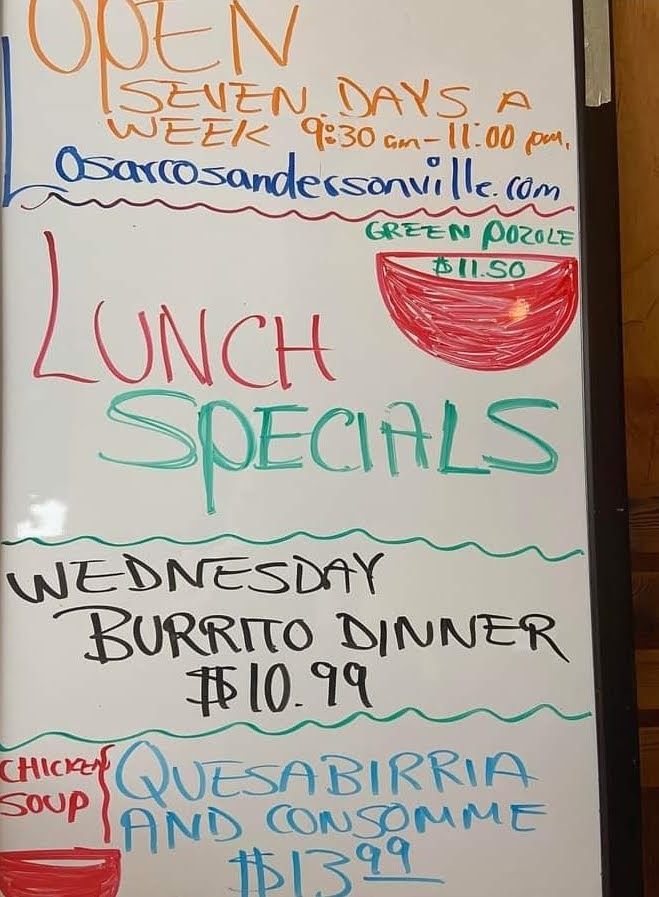 OPEN
SEVEN DAYS A
WEEK 9:30 am-11:00 pm.
Losarcosandersonville.com
GREEN POZOLE
$11.50
LUNCH
SPECIALS
WEDNESDAY
BURRITO DINNER
$10.99
CHICKEN
SOUP
QUESABIRRIA
AND CONSOMME
$13.99